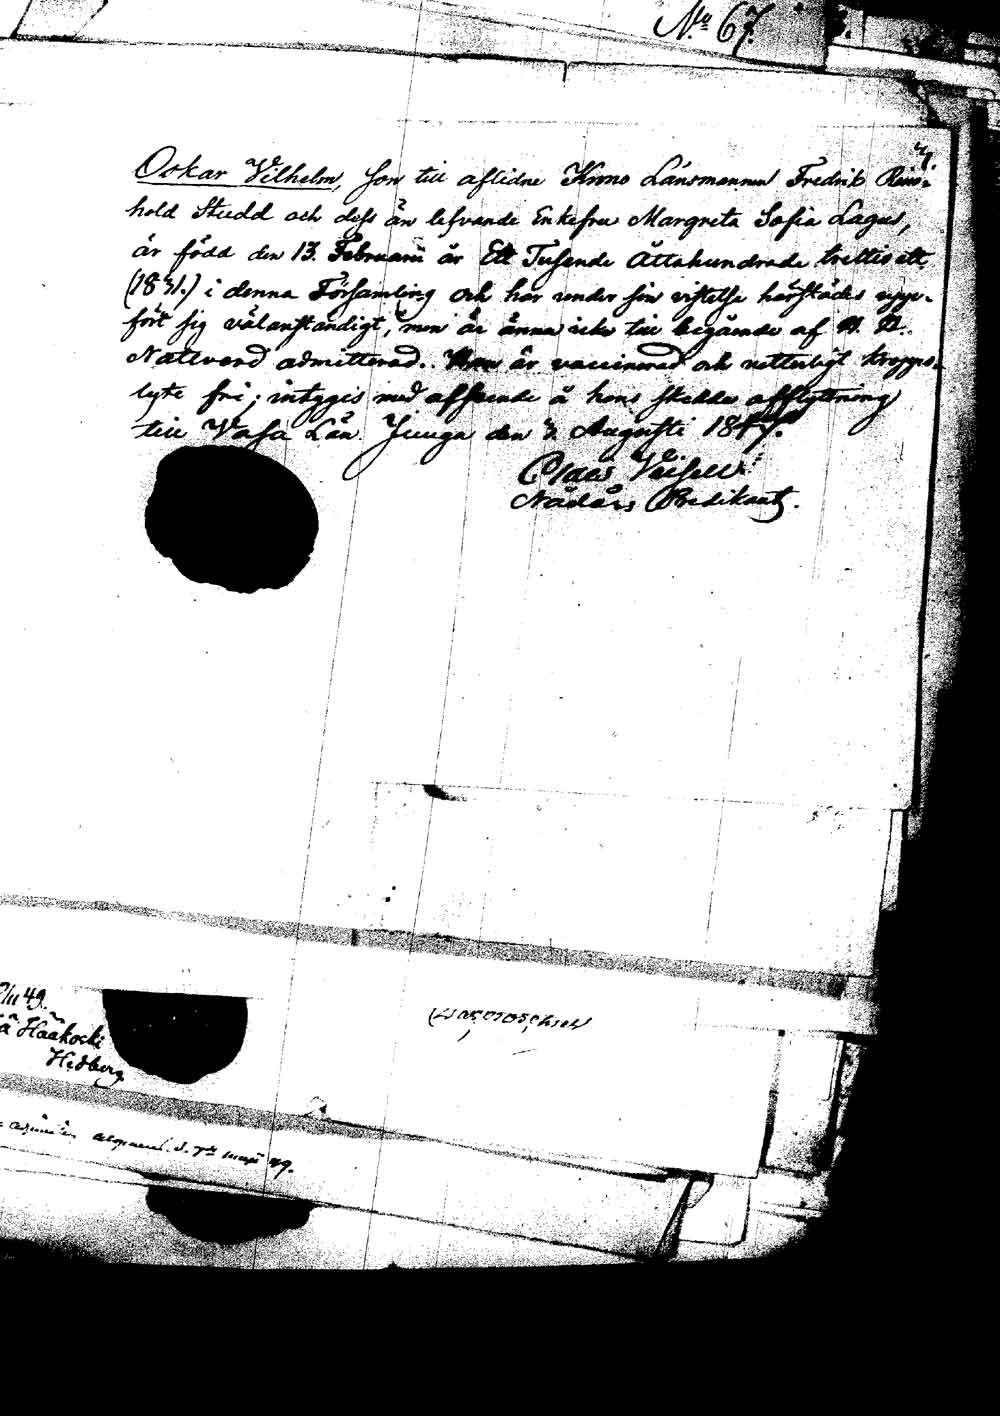 No 67.
7.
Oskar Vilhelm, son till aflidne Krono Länsmannen Fredrik Rein-
hold Studd och dess än lefvande Enkefru Margreta Sofia Lagus,
är född den 13. Februarii år Ett Tusende Åttahundrade trettioett
(1831.) i denna Församling och har under sin vistelse härstädes upp-
fört sig välanständigt, men är ännu icke till begående af H. H.
Nattvard admitterad. Han är vaccinerad och vetterligt kropps-
lyte fri; intygis med afseende å hans skedda afflyttning
till Vasa Län. Juuga den 3. Augusti 1847.
Claes
Nådårs Predikant.
49.
Hedberg
49.